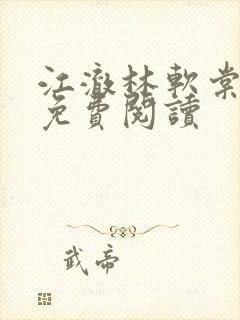 江澈林軟棠
免費閱讀
武帝